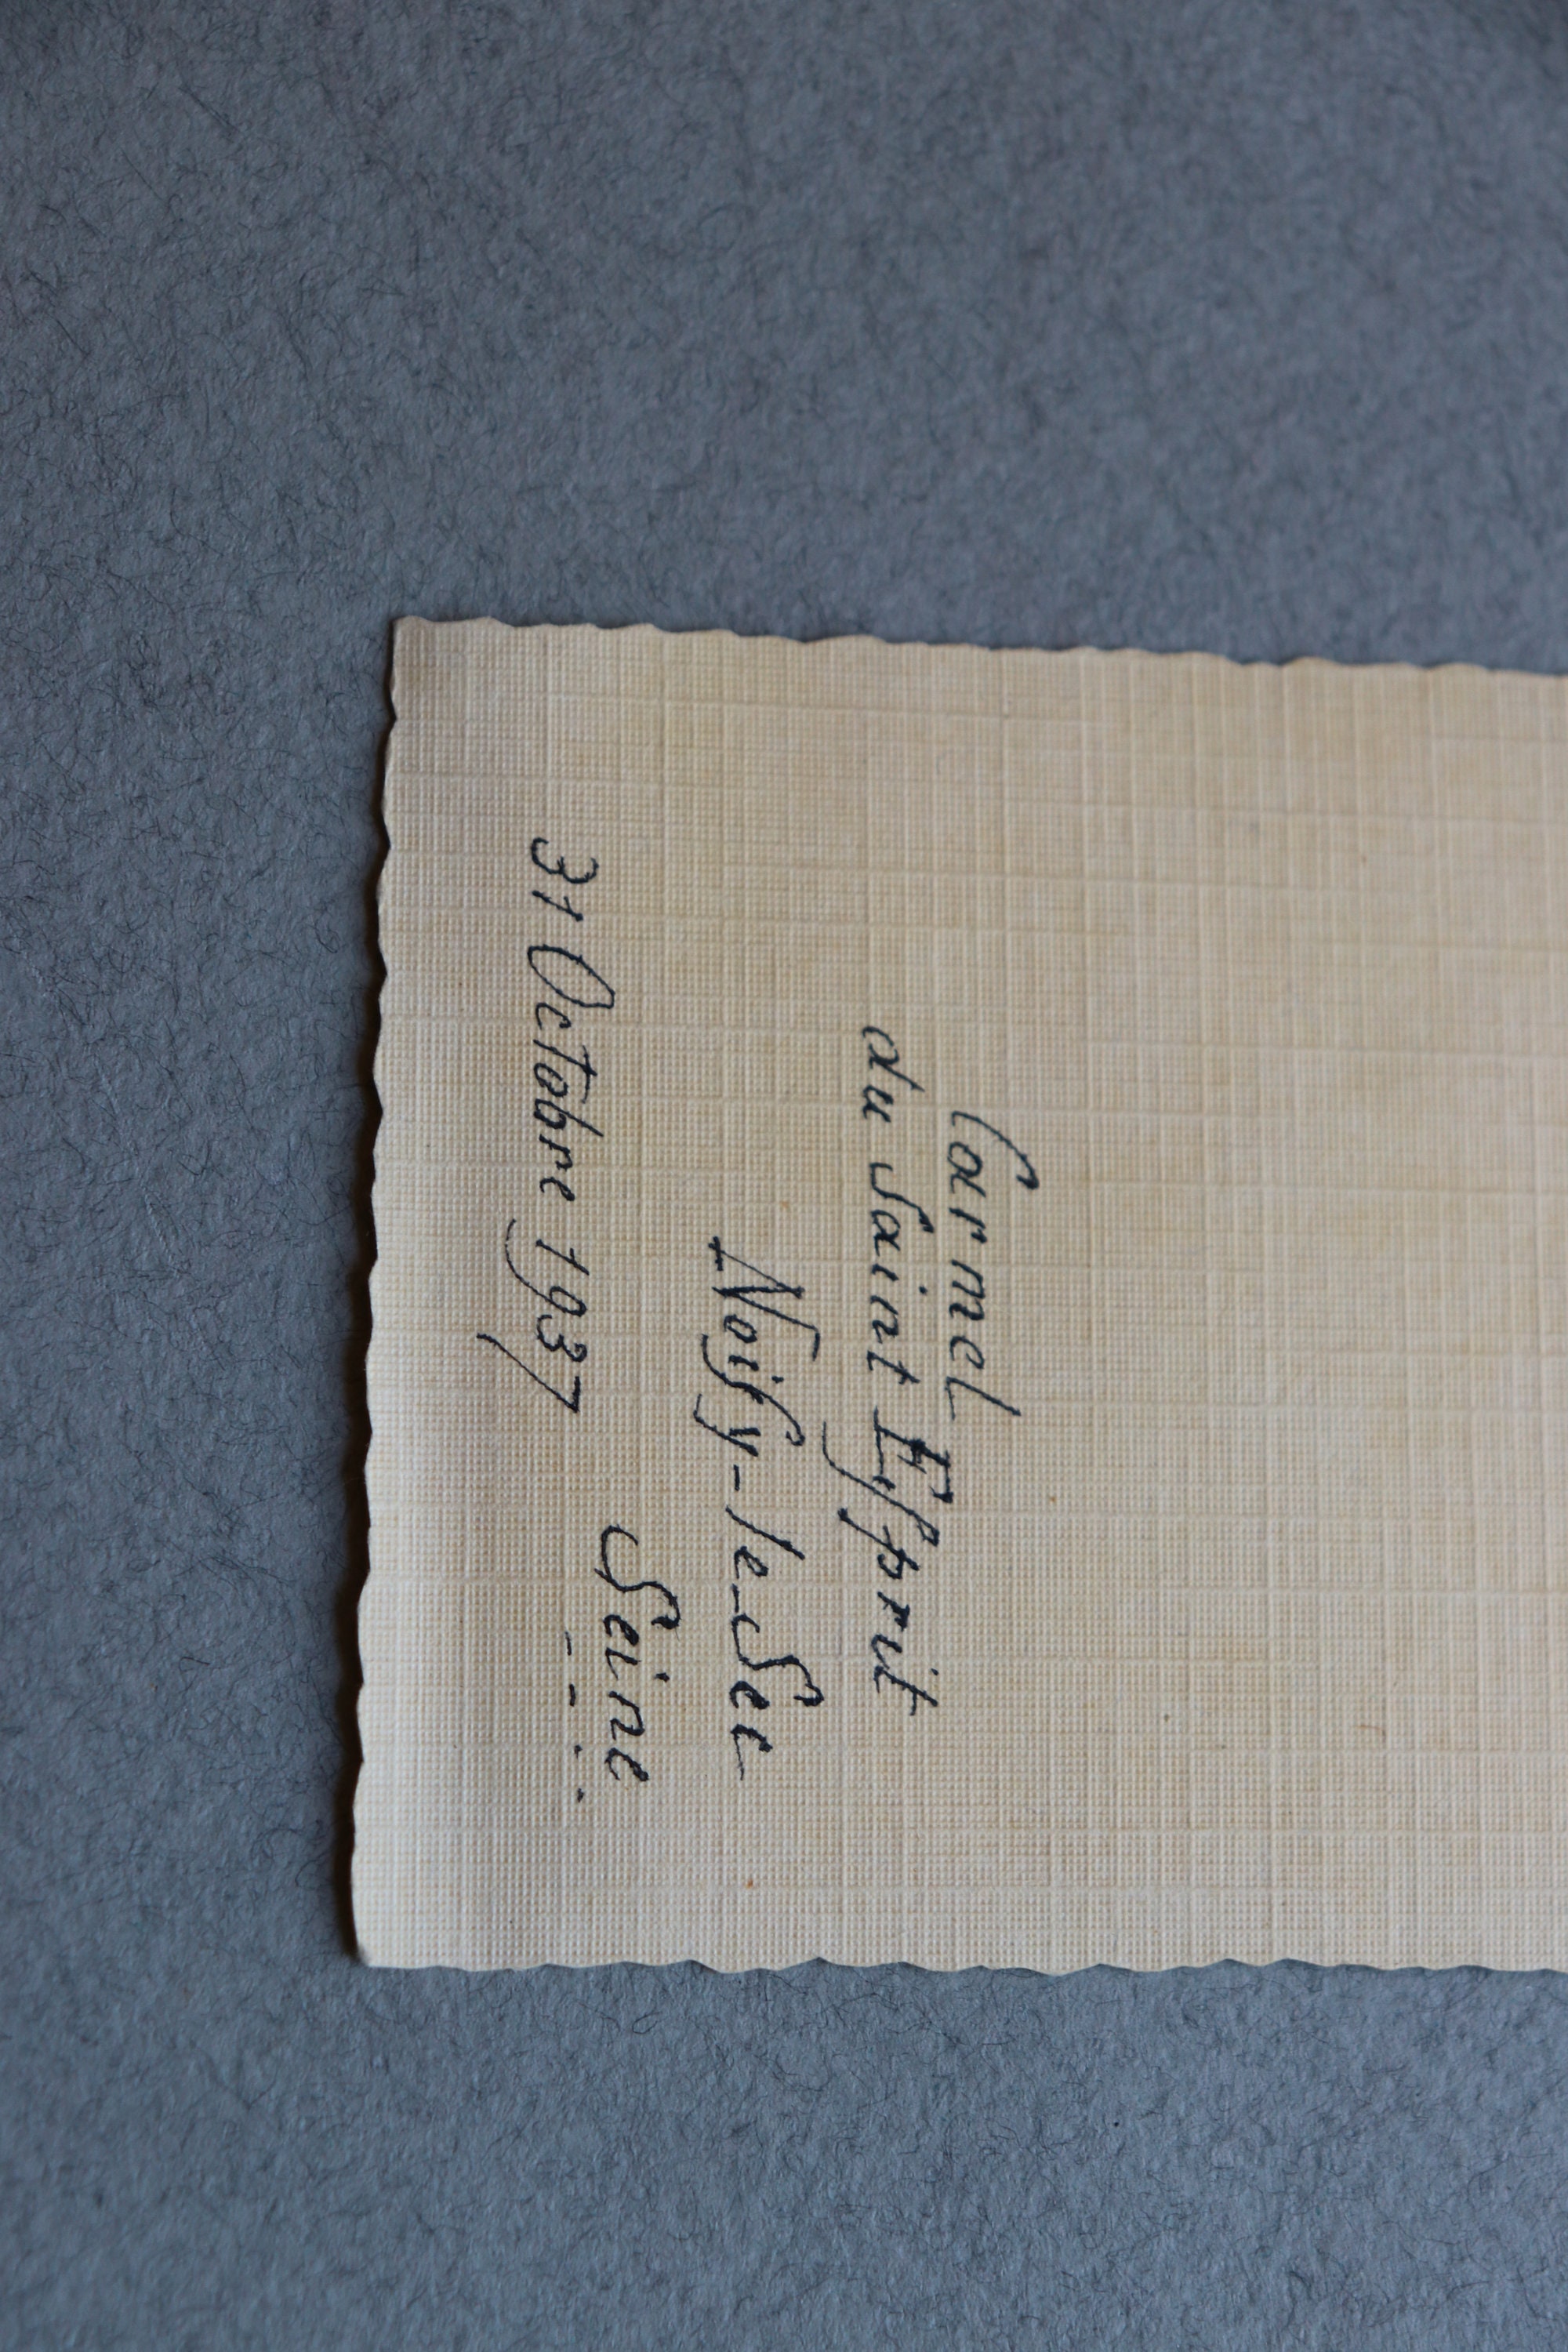 Carmel
du Saint Esprit
Noisy-le-Sec
Seine
31 Octobre 1937